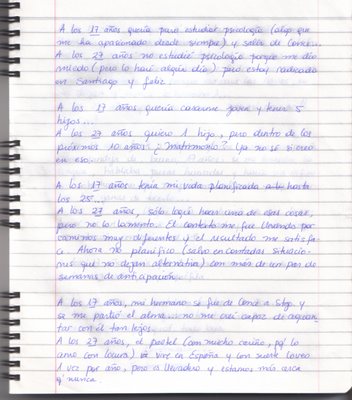 A los 17 años quería puro estudiar psicología (algo que
me ha apasionado desde siempre) y salir de Conce...
A los 27 años no estudié psicología porque me dio
miedo (pero lo haré algún día) pero estoy radicada
en Santiago y feliz.
A los 17 años quería casarme joven y tener 5
hijos...
A los 27 años, quiero 1 hijo, pero dentro de los
próximos 10 años. ¿Matrimonio? Ya no sé si creo
en eso.
A los 17 años tenía mi vida planificada hasta
los 25...
A los 27 años, sólo logré hacer una de esas cosas,
pero no lo lamento. El contexto me fue llevando por
caminos muy diferentes y el resultado me satisfa-
ce. Ahora no planifico (salvo en contadas situacio-
nes que no dejan alternativa) con más de un par de
semanas de anticipación.
A los 17 años, mi hermano se fue de Conce a Stgo. y
se me partió el alma... no me creí capaz de aguan-
tar con él tan lejos.
A los 27 años, el pastel (con mucho cariño, pq' lo
amo con locura) se vive en España y con suerte lo veo
1 vez por año, pero es llevadero y estamos más cerca
q' nunca.